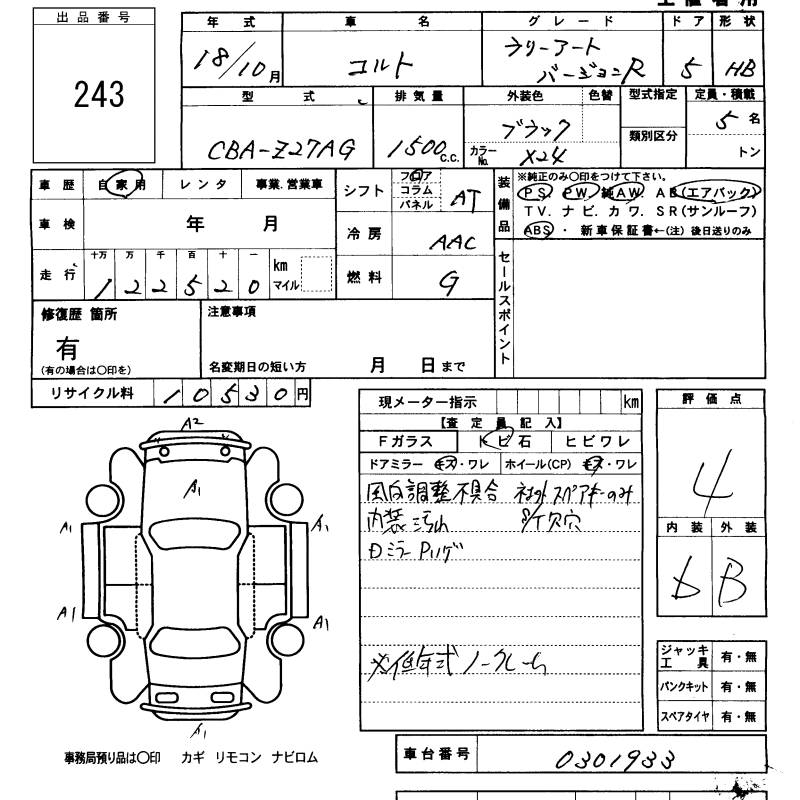 出品番号
243
年式 車名 グレード ドア 形状
18/10月 コルト ラリーアート バージョンR 5 HB
型式 排気量 外装色 色替 型式指定 定員・積載
CBA-Z27AG 1500c.c. ブラック 類別区分 5名
カラーNo. X24 トン
車歴 自家用 レンタ 事業.営業車
車検 年 月
走行 十万 万 千 百 十 一
1 2 2 5 2 0 km マイル
シフト フロア コラム パネル AT
冷房 AAC
燃料 G
装備品 ※純正のみ〇印をつけて下さい。
PS. PW. 純AW. AB(エアバック)
TV.ナビ.カワ.SR(サンルーフ)
ABS・新車保証書←(注)後日送りのみ
セールスポイント
修復歴 箇所
有
(有の場合は〇印を)
注意事項
名変期日の短い方 月 日まで
リサイクル料 10530円
現メーター指示 km
【査定員記入】
Fガラス トビ石 ヒビワレ
ドアミラー キズ・ワレ ホイール(CP) キズ・ワレ
風向調整不具合 社外スペアキーのみ
内装汚れ 欠穴
Dミラー
※低年式ノークレーム
評価点
4
内装 外装
D B
ジャッキ工具 有・無
パンクキット 有・無
スペアタイヤ 有・無
A2
A1
A1
A1
A1
A1
A1
事務局預り品は〇印 カギ リモコン ナビロム
車台番号 0301933